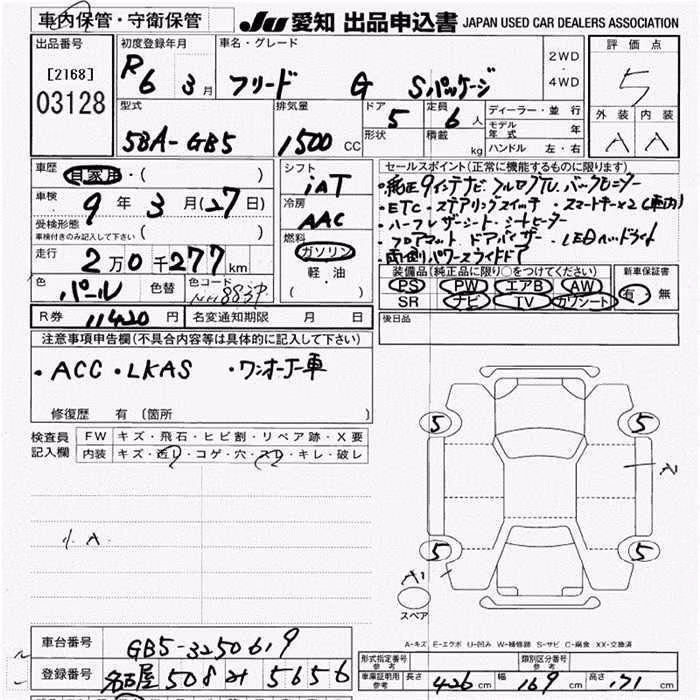 車内保管・守衛保管
JU 愛知 出品申込書 JAPAN USED CAR DEALERS ASSOCIATION
出品番号 初度登録年月 車名・グレード 2WD・4WD 評価点
[2168] R6 3月 フリード G Sパッケージ 5
03128
型式 排気量 ドア 5 定員 6人 ディーラー・並行 外装 内装
5BA-GB5 1500cc 形状 積載 kg モデル年式 年 A A
ハンドル 左・右
車歴 自家用・( ) シフト セールスポイント(正常に機能するものに限ります)
車検 9年3月(27日) iAT ・純正9インチナビ フルセグTV バックモニター
受検形態 冷房 ・ETC・ステアリングスイッチ ・スマートキー×2(車内)
車検付きのみ記入して下さい( ) AAC ・ハーフレザーシート・シートヒーター
走行 2万0千277km 燃料 ・フロアマット ドアバイザー ・LEDヘッドライト
ガソリン 両側パワースライドドア
色 パール 色替 色コード 軽・油 装備品(純正品に限り○をつけてください) 新車保証書
( ) PS PW エアB AW 有・無
SR ナビ TV カワシート
R券 11420円 名変通知期限 月 日 後日品
注意事項申告欄(不具合内容等は具体的に記入して下さい)
・ACC・LKAS ・ワンオーナー車
修復歴 有(箇所 )
検査員記入欄 FW キズ・飛石・ヒビ割・リペア跡・X要
内装 キズ・汚レ・コゲ・穴・スレ・キレ・破レ
5 5
A1
小A
5 5
A1
スペア
A-キズ E-エクボ U-凹み W-補修跡 S-サビ C-腐食 XX-交換済
車台番号 GB5-3250619
登録番号 名古屋 508 5656
形式指定番号 参考 類別区分番号 参考
車庫証明用参考 長さ 426cm 幅 169cm 高さ 171cm